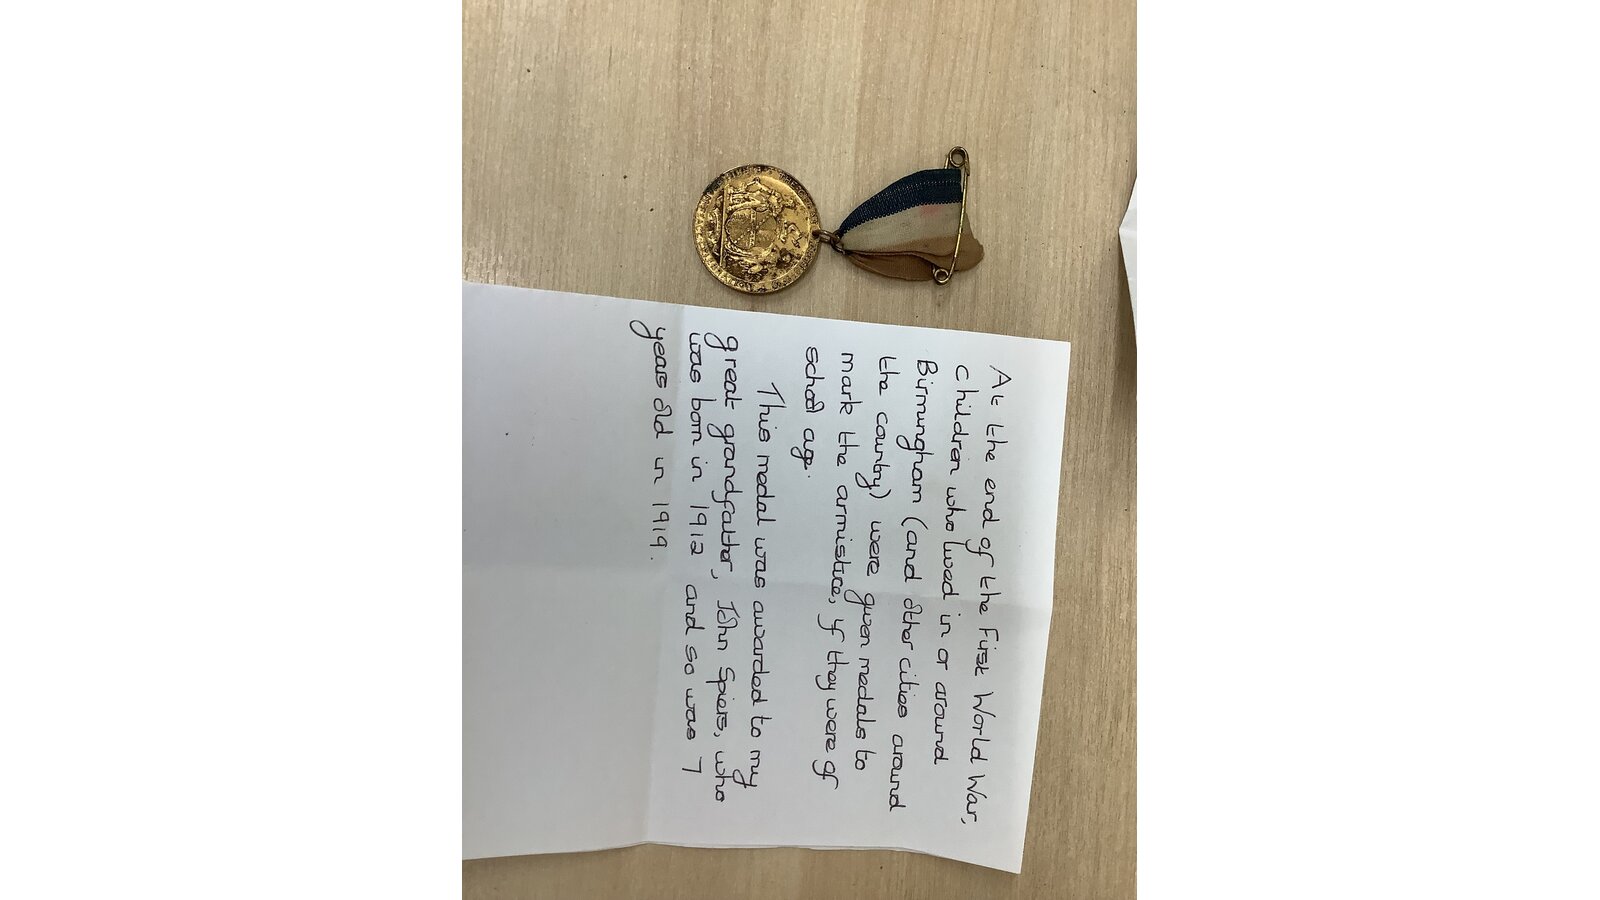 At the end of the First World War,
children who lived in or around
Birmingham (and other cities around
the country) were given medals to
mark the armistice, if they were of
school age.
This medal was awarded to my
great grandfather, John Spiers, who
was born in 1912 and so was 7
years old in 1919.